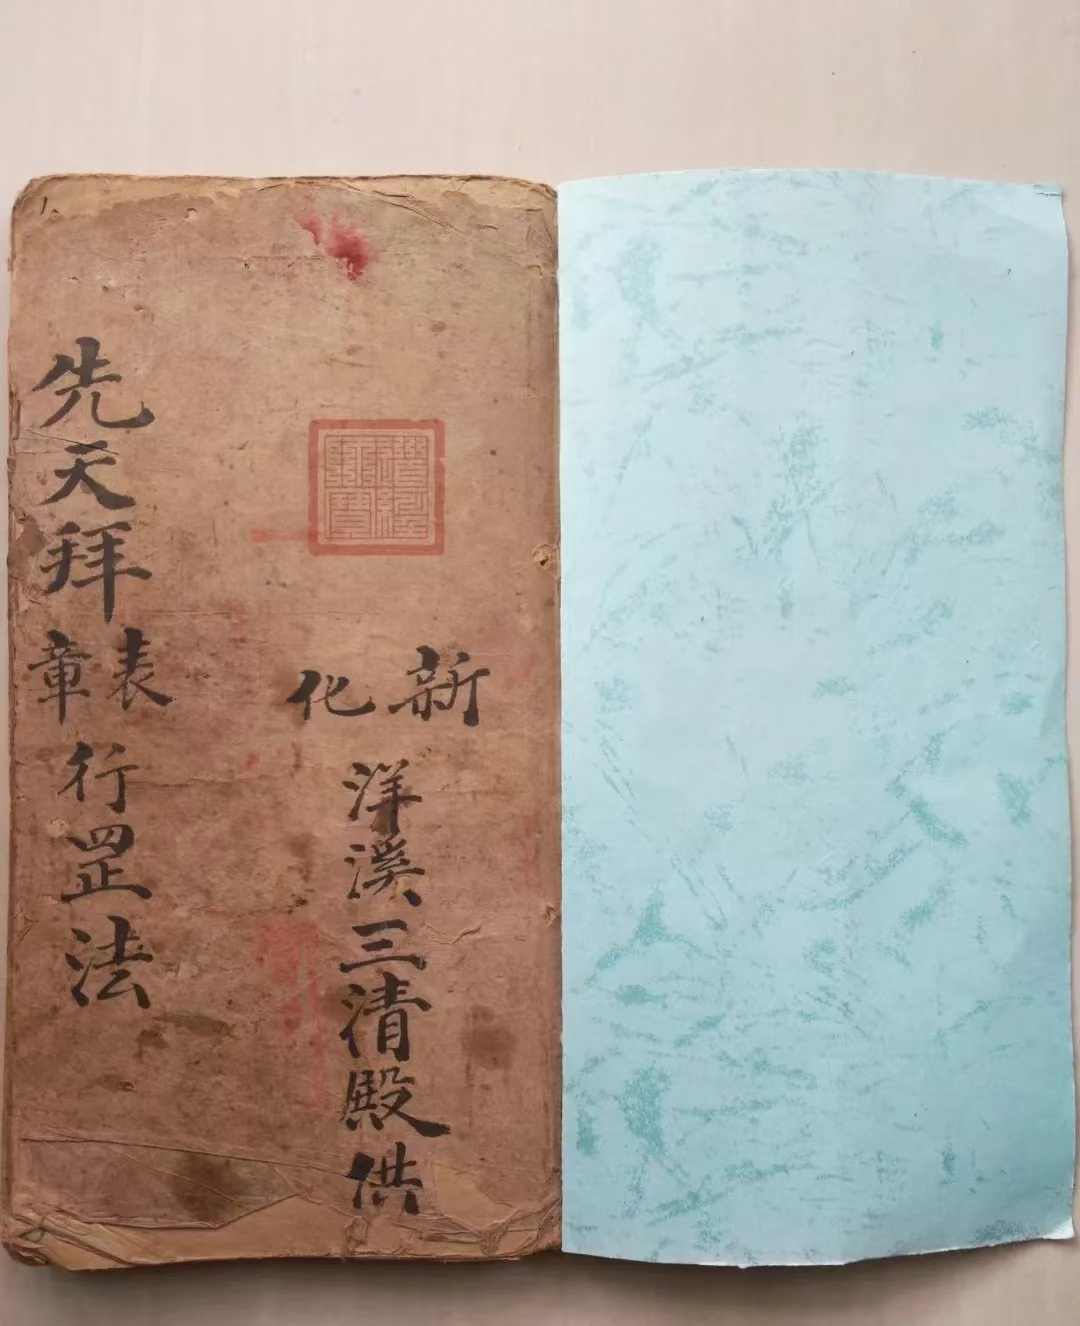 新化
洋溪三清殿供
先天拜表章行罡法